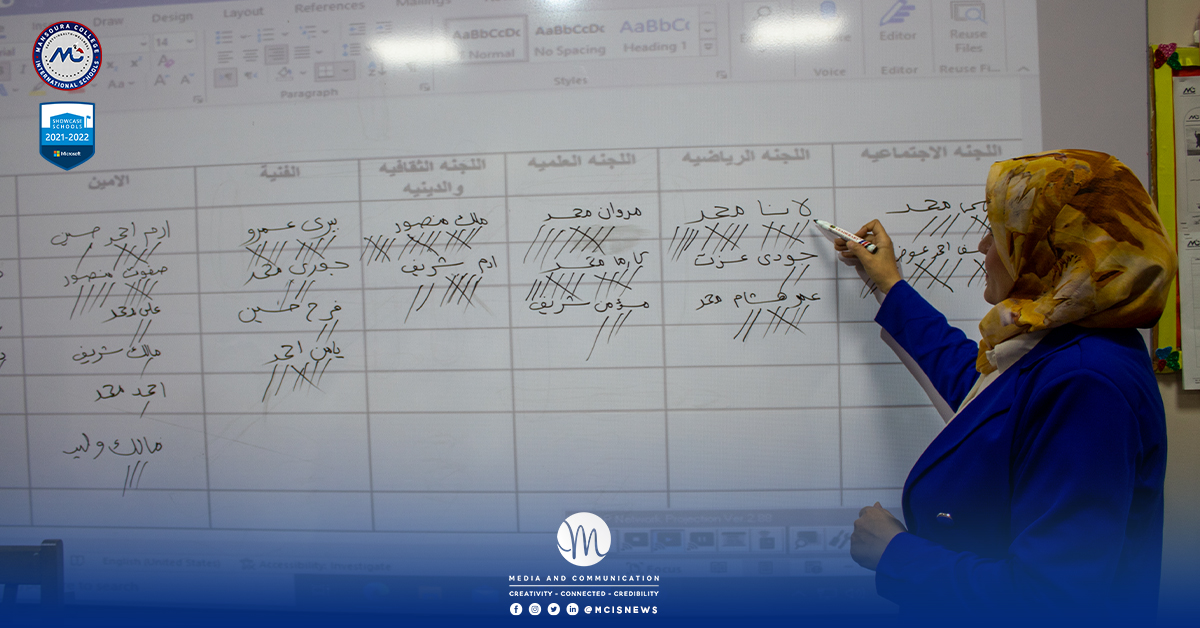 MANSOURA COLLEGE
INTERNATIONAL SCHOOLS
SHOWCASE
SCHOOLS
2021-2022
Microsoft
Draw
Design
Layout
References
Mailings
14
Aa
Paragraph
AaBbCcDc
Normal
AaBbCcDc
No Spacing
AaBbCc
Heading 1
Styles
Voice
Editor
Editor
Reuse
Files
Reuse Fi...
اللجنه الاجتماعيه
اللجنه الرياضيه
اللجنه العلميه
اللجنه الثقافيه
والدينيه
الفنية
الامين
محمد
لانا محمد
مروان محمد
ملك منصور
بيرى عمرو
ادم احمد حسين
جودى عزت
كارما محمد
ادم شريف
جورى محمد
صفوت منصور
عمر هشام محمد
مؤمن شريف
فرح حسين
على محمد
يامن احمد
مالك شريف
احمد محمد
مالك وليد
English (United States)
Accessibility: Investigate
Focus
M
MEDIA AND COMMUNICATION
CREATIVITY - CONNECTED - CREDIBILITY
@MCISNEWS